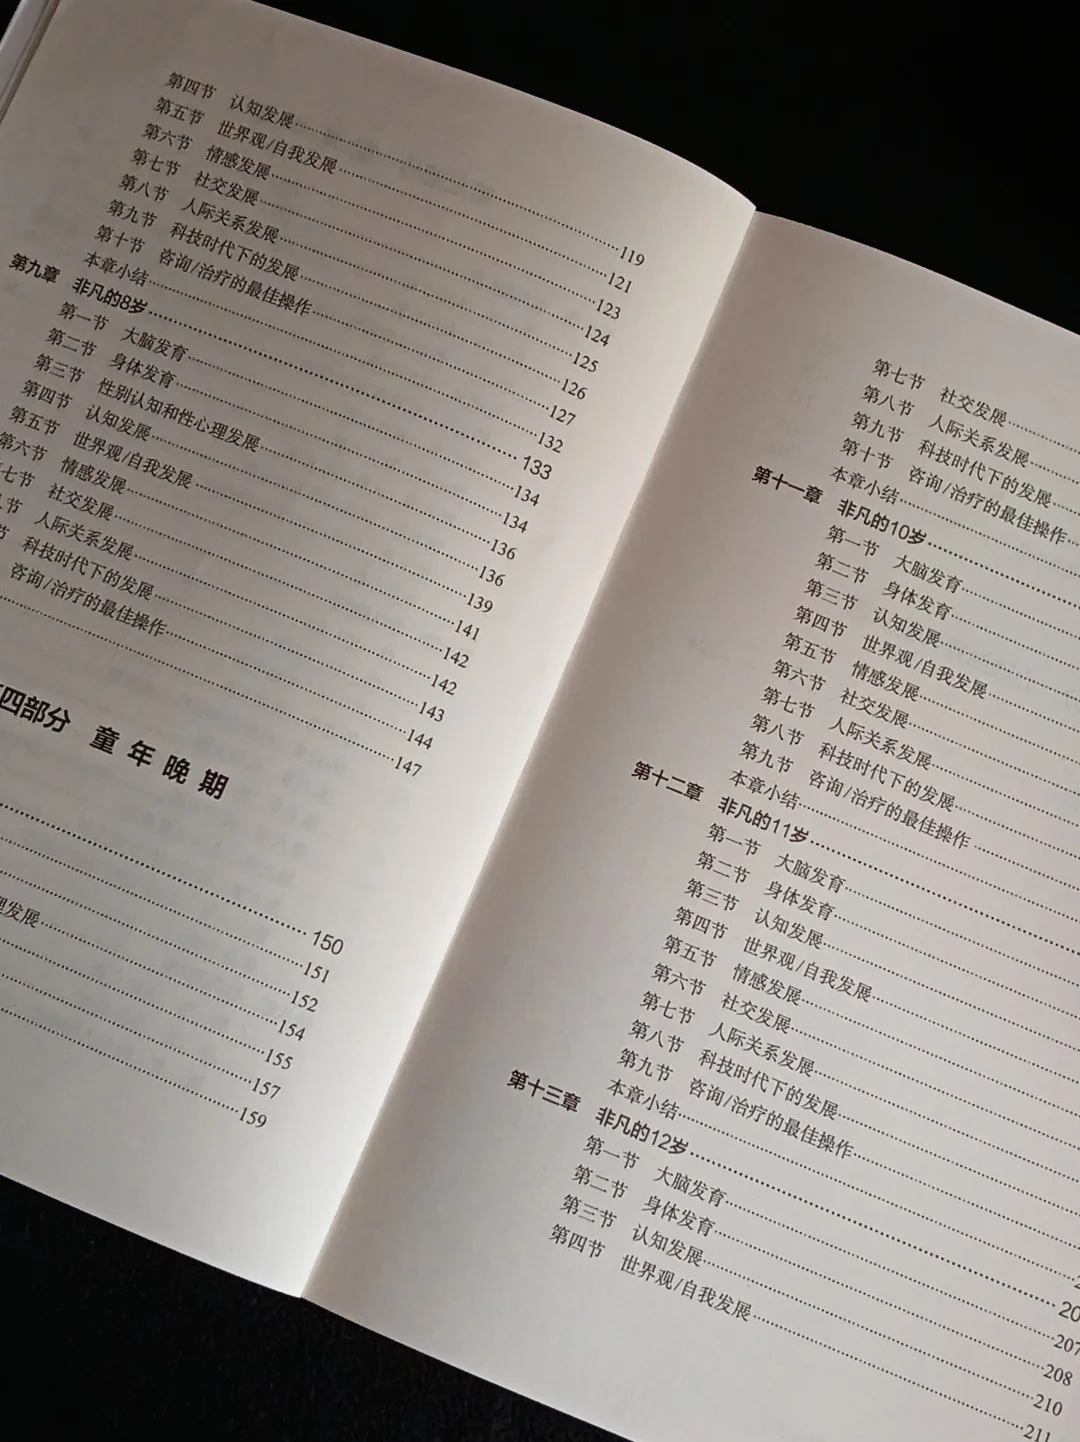 第四节 认知发展……119
第五节 世界观/自我发展……121
第六节 情感发展……123
第七节 社交发展……124
第八节 人际关系发展……125
第九节 科技时代下的发展……126
第十节 咨询/治疗的最佳操作……127
本章小结……132
第九章 非凡的8岁……133
第一节 大脑发育……134
第二节 身体发育……134
第三节 性别认知和性心理发展……136
第四节 认知发展……136
第五节 世界观/自我发展……139
第六节 情感发展……141
七节 社交发展……142
八节 人际关系发展……142
节 科技时代下的发展……143
咨询/治疗的最佳操作……144
……147
四部分 童年晚期
……150
……151
……152
理发展……154
……155
……157
……159
第七节 社交发展……
第八节 人际关系发展……
第九节 科技时代下的发展……
第十节 咨询/治疗的最佳操作……
本章小结……
第十一章 非凡的10岁……
第一节 大脑发育……
第二节 身体发育……
第三节 认知发展……
第四节 世界观/自我发展……
第五节 情感发展……
第六节 社交发展……
第七节 人际关系发展……
第八节 科技时代下的发展……
第九节 咨询/治疗的最佳操作……
本章小结……
第十二章 非凡的11岁……
第一节 大脑发育……
第二节 身体发育……
第三节 认知发展……
第四节 世界观/自我发展……
第五节 情感发展……
第六节 社交发展……
第七节 人际关系发展……
第八节 科技时代下的发展……
第九节 咨询/治疗的最佳操作……
本章小结……2
第十三章 非凡的12岁……20
第一节 大脑发育……207
第二节 身体发育……208
第三节 认知发展……210
第四节 世界观/自我发展……211